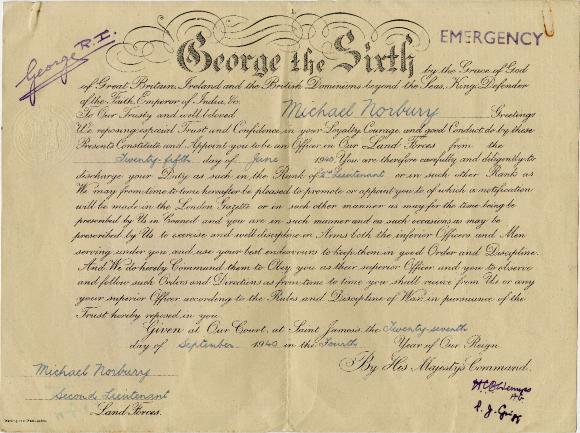 George R.I.
EMERGENCY
George the Sixth
by the Grace of God
of Great Britain, Ireland and the British Dominions beyond the Seas, King, Defender
of the Faith, Emperor of India, &c.
To Our Trusty and well beloved Michael Norbury Greeting:
We, reposing especial Trust and Confidence in your Loyalty, Courage, and good Conduct, do by these
Presents Constitute and Appoint you to be an Officer in Our Land Forces from the
Twenty-fifth day of June 1940. You are therefore carefully and diligently to
discharge your Duty as such in the Rank of 2nd Lieutenant or in such other Rank as
We may from time to time hereafter be pleased to promote or appoint you to, of which a notification
will be made in the London Gazette, or in such other manner as may for the time being be
prescribed by Us in Council, and you are in such manner and on such occasions as may be
prescribed by Us to exercise and well discipline in Arms both the inferior Officers and Men
serving under you and use your best endeavours to keep them in good Order and Discipline.
And We do hereby Command them to Obey you as their superior Officer, and you to observe
and follow such Orders and Directions as from time to time you shall receive from Us, or any
your superior Officer, according to the Rules and Discipline of War, in pursuance of the
Trust hereby reposed in you.
Given at Our Court, at Saint James's, the Twenty-seventh
day of September 1940 in the Fourth Year of Our Reign
By His Majesty's Command.
Michael Norbury
Second Lieutenant
Land Forces.